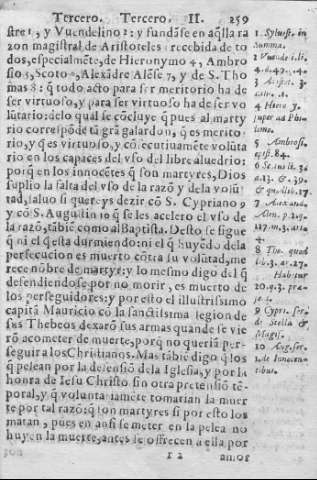 Tercero. Tercero. II. 259
stre 1, y Vuendelino 2: y fundãse en aq̃lla ra
zon magistral de Aristoteles 3 recebida de to
dos, especialmẽte, de Hieronymo 4, Ambro
sio 5, Scoto 6, Alexãdre Alẽse 7, y de S. Tho
mas 8: q̃ todo acto para ser meritorio ha de
ser virtuoso, y para ser virtuoso ha de ser vo
lũtario: delo qual se cõcluye q̃ pues al marty
rio correspõde tã grã galardon, q̃ es merito
rio, y q̃ es virtuoso, y cõsecutiuamẽte volũta
rio en los capaces del vso del libre aluedrio:
porq̃ en los innocẽtes q̃ son martyres, Dios
suplio la falta del vso de la razõ y dela volũ
tad, saluo si quereys dezir cõ S. Cypriano 9
y cõ S. Augustin 10 q̃ se les acelero el vso de
la razõ, tãbiẽ como al Baptista. Desto se sigue
q̃ ni el q̃ esta durmiendo: ni el q̃ huyẽdo dela
persecucion es muerto cõtra su volũtad, me
rece nõbre de martyr: y lo mesmo digo del q̃
defendiendose por no morir, es muerto de
los perseguidores: y por esto el illustrissimo
capitã Mauricio cõ la sanctissima legion de
sus Thebeos dexarõ sus armas quando se vie
rõ acometer de muerte, porq̃ no queriã per-
seguir a los Christianos. Mas tãbiẽ digo q̃ los
q̃ pelean por la defensiõ dela Iglesia, y por la
honra de Iesu Christo sin otra pretensiõ tẽ-
poral, y q̃ voluntariamẽte tomarian la muer
te por tal razõ: q̃ son martyres si por esto los
matan, pues en ansi se meter en la pelea no
huyen la muerte, antes se offrecen a ella por
I 2 amor
1 Syluest. in
summa.
2
3
4 Hiero.
5 Ambrosi.
epist. 84.
6
7
8 Tho.
9 Cypri. ser.
de Stella &
Magis.
10 Aug. ser.
de Innocen
tibus.